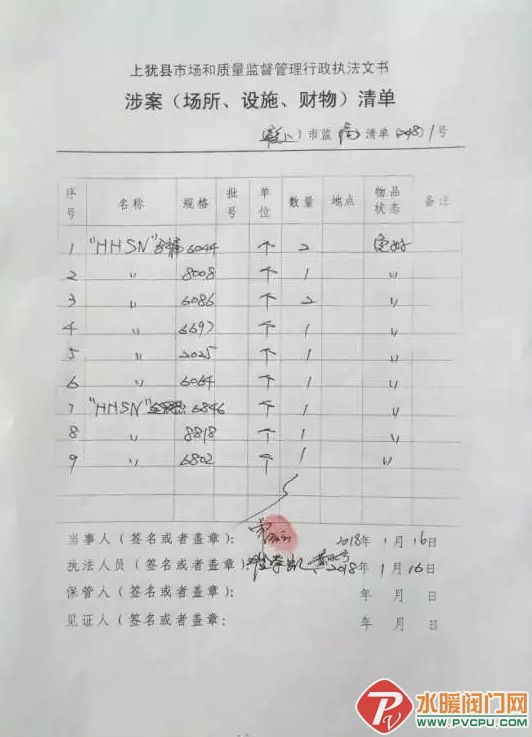 上犹县市场和质量监督管理行政执法文书
涉案（场所、设施、财物）清单
）市监 清单 1号
序号 名称 规格 批号 单位 数量 地点 物品状态 备注
1 "HHSN" 6044 个 2 完好
2 〃 8008 个 1 〃
3 〃 6086 个 2 〃
4 〃 6697 个 1 〃
5 〃 2025 个 1 〃
6 〃 6064 个 1 〃
7 "HHSN" 6846 个 1 〃
8 〃 8818 个 1 〃
9 〃 6802 个 1 〃
当事人（签名或者盖章）： 2018年1月16日
执法人员（签名或者盖章）： 2018年1月16日
保管人（签名或者盖章）： 年 月 日
见证人（签名或者盖章）： 年 月 日
水暖阀门网
WWW.PVCPU.COM